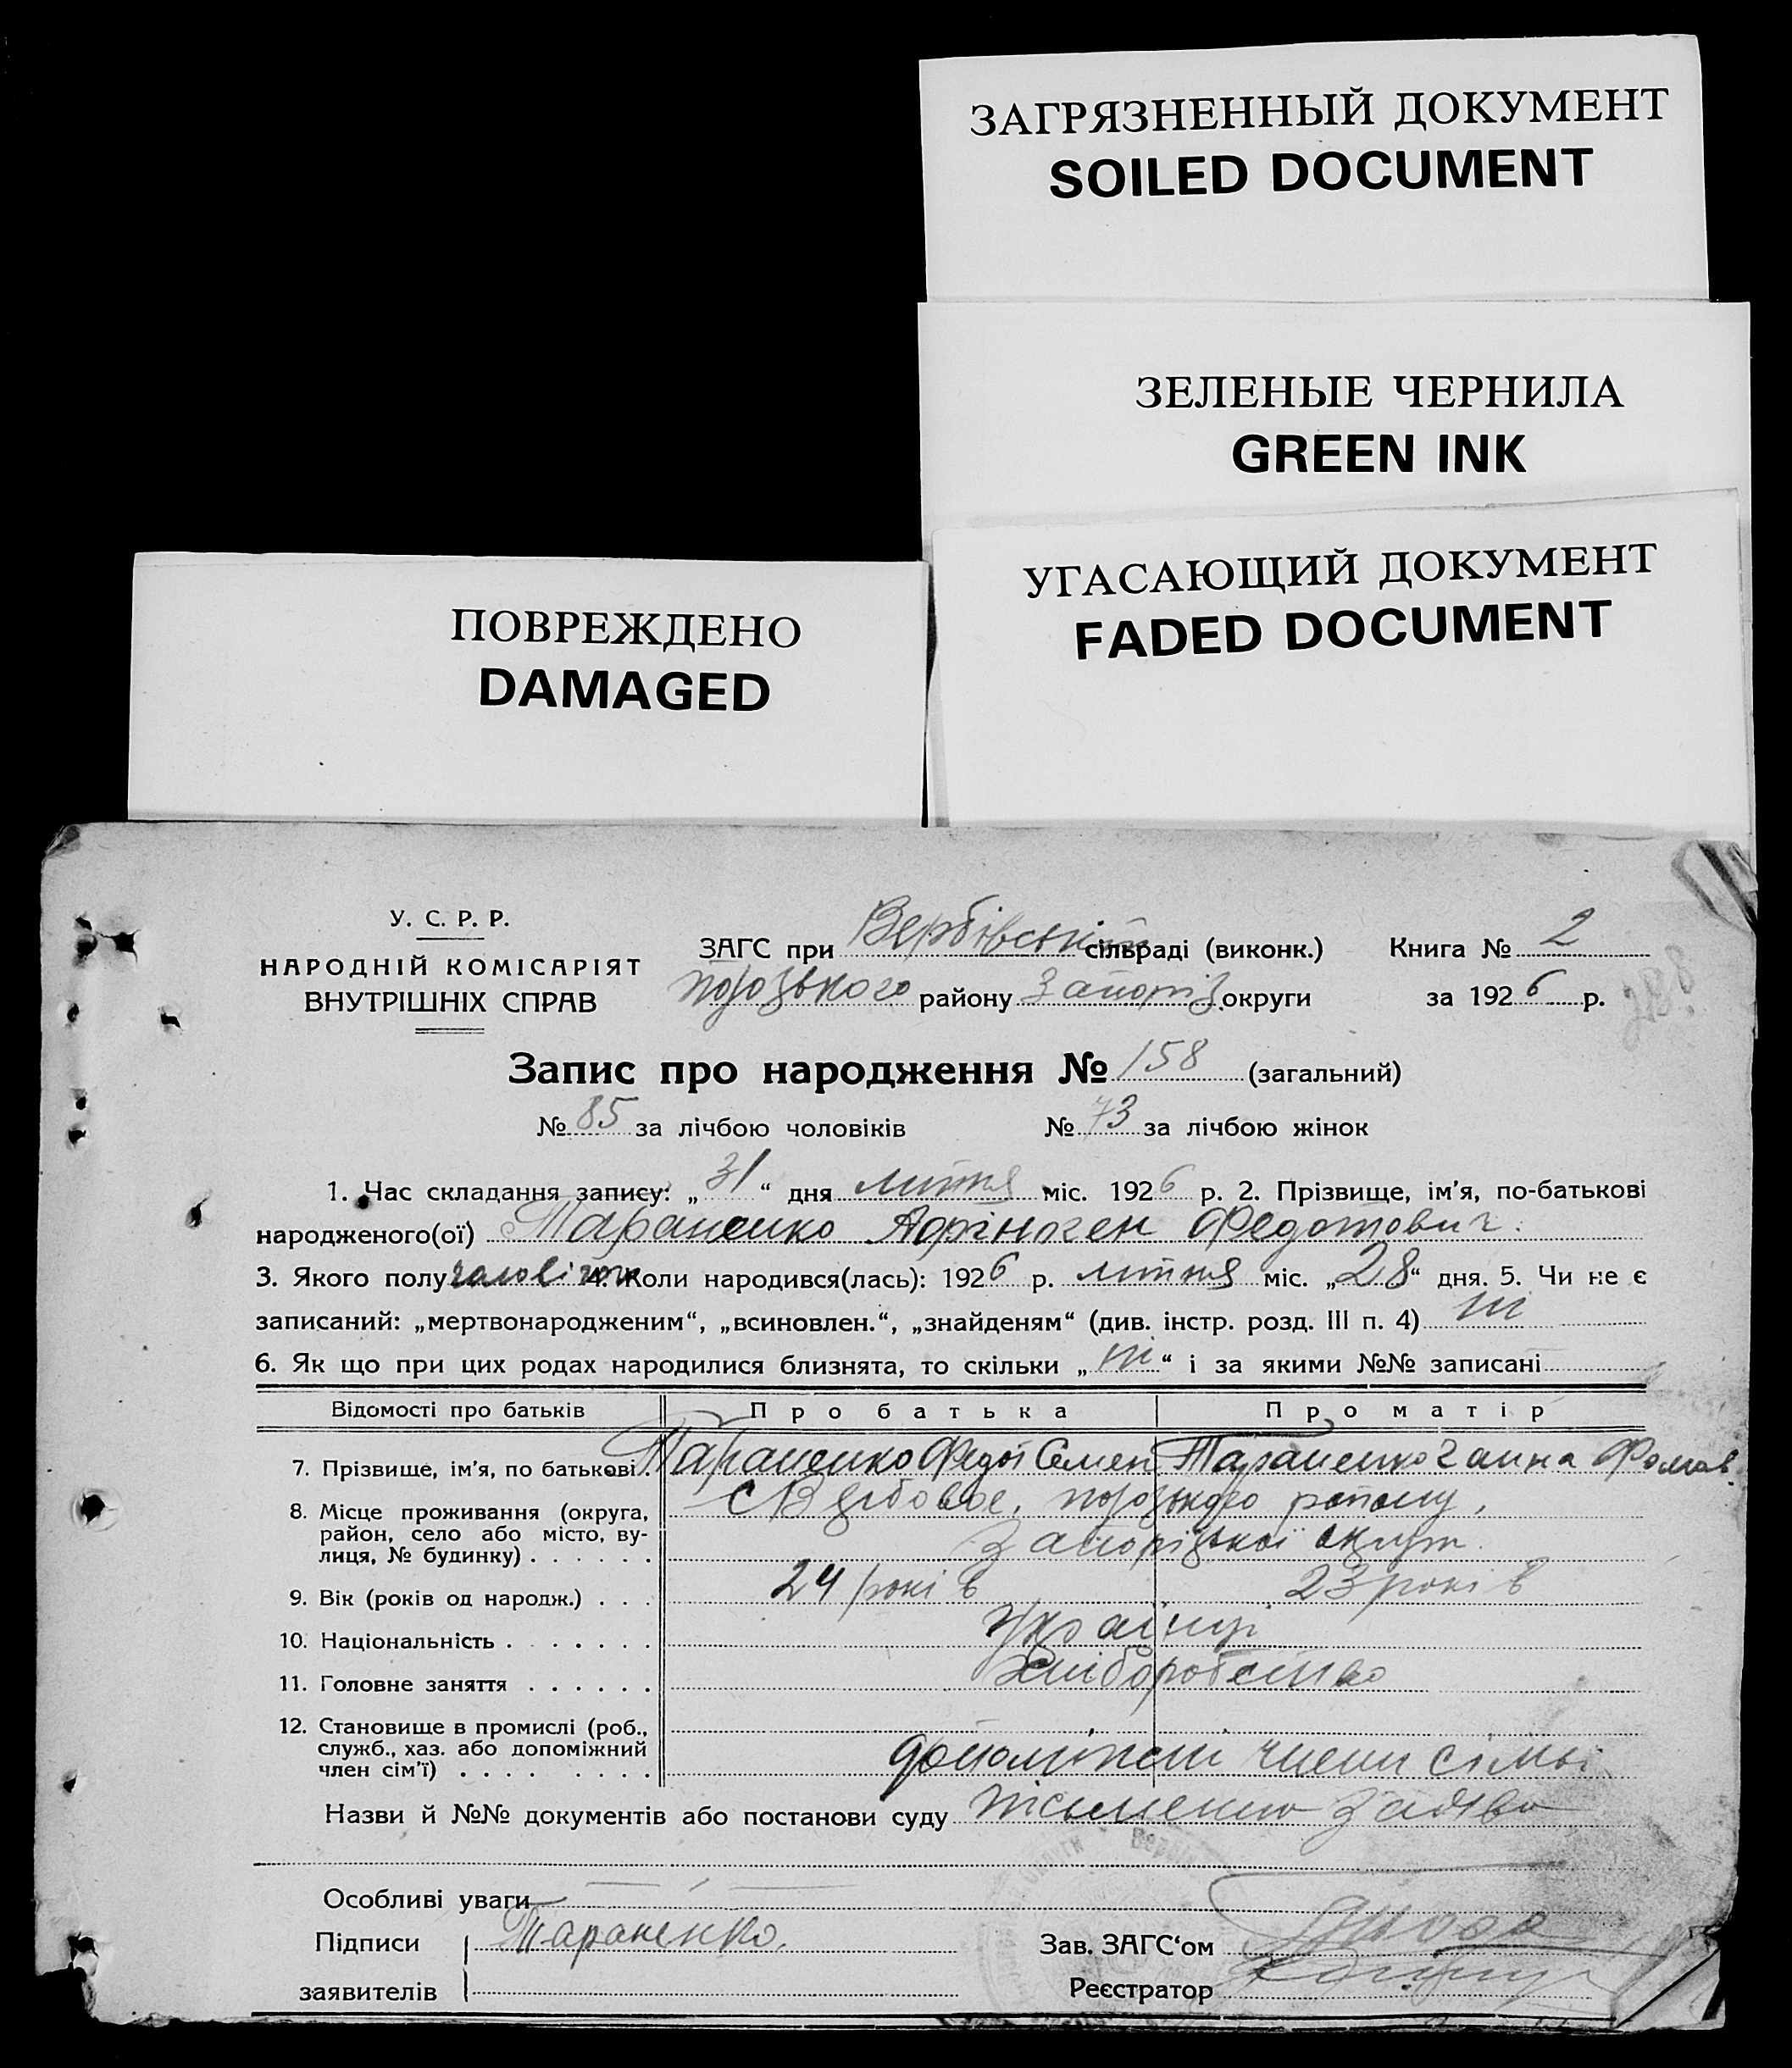 ЗАГРЯЗНЕННЫЙ ДОКУМЕНТ
SOILED DOCUMENT
ЗЕЛЕНЫЕ ЧЕРНИЛА
GREEN INK
УГАСАЮЩИЙ ДОКУМЕНТ
FADED DOCUMENT
ПОВРЕЖДЕНО
DAMAGED
У. С. Р. Р.
НАРОДНІЙ КОМІСАРІЯТ
ВНУТРІШНІХ СПРАВ
ЗАГС при Вербівській сільраді (виконк.) Книга № 2
району Запоріз. округи за 1926 р.
Запис про народження № 158 (загальний)
№ 85 за лічбою чоловіків № 73 за лічбою жінок
1. Час складання запису: „31“ дня липня міс. 1926 р. 2. Прізвище, ім’я, по-батькові
народженого(ої) Тараненко Афіноген Федотович.
3. Якого полу чоловічого 4. Коли народився(лась): 1926 р. липня міс. „28“ дня. 5. Чи не є
записаний: „мертвонародженим“, „всиновлен.“, „знайденям“ (див. інстр. розд. III п. 4) ні
6. Як що при цих родах народилися близнята, то скільки „ні“ і за якими №№ записані
Відомості про батьків Про батька Про матір
7. Прізвище, ім’я, по батькові Тараненко Федот Семен Тараненко Ганна Фомов.
8. Місце проживання (округа, район, село або місто, вулиця, № будинку) с Вербовое, району,
Запорізької округи.
9. Вік (років од народж.) 24 років 23 років
10. Національність Українці
11. Головне заняття Хліборобство
12. Становище в промислі (роб., служб., хаз. або допоміжний член сім’ї) допоміжні члени сімьі
Назви й №№ документів або постанови суду Письменна заява
Особливі уваги
Підписи Тараненко. Зав. ЗАГС‘ом
заявителів Реєстратор